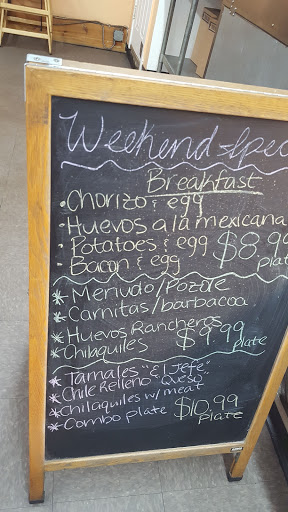 Weekend Spec
Breakfast
• Chorizo & egg
• Huevos a la mexicana
• Potatoes & egg $8.99
• Bacon & egg plate
* Menudo/Pozole
* Carnitas/barbacoa
* Huevos Rancheros
* Chilaquiles $9.99 plate
* Tamales "el Jefe"
* Chile Relleno-Queso
* Chilaquiles w/ meat
* Combo plate $10.99 plate